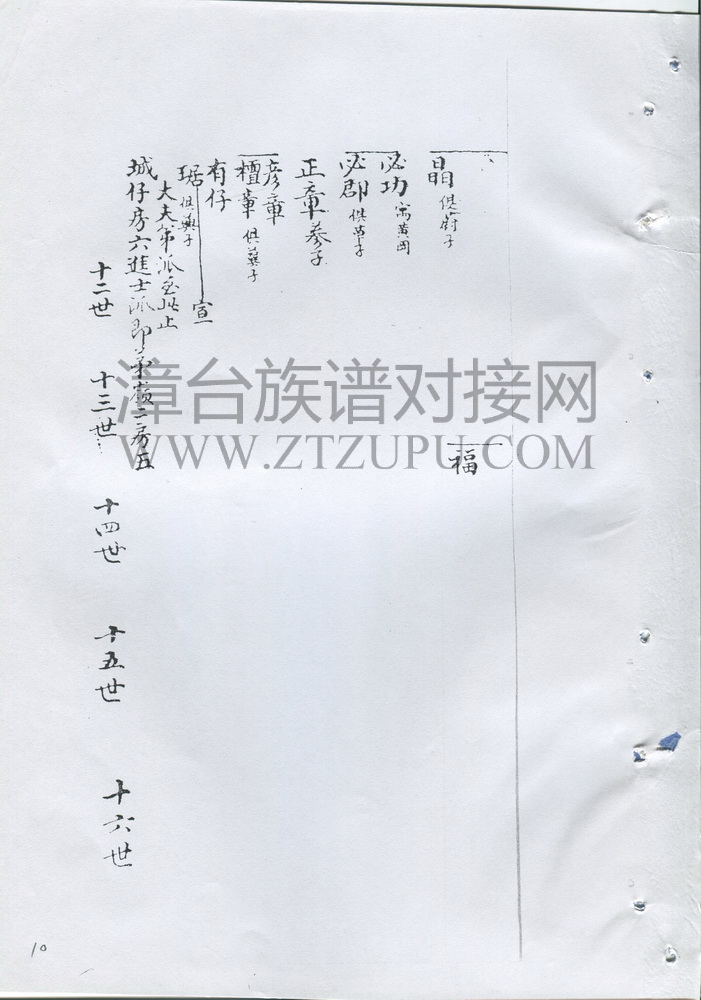 晶 俱蔚子
福
必功 寓黄岡
必郡 俱草子
正章 蓁子
彦章
檀章 俱冀子
有仔
琚 俱子
宣
大夫第派至此止
城仔房六進士派即嶺二房五
十二世
十三世
十四世
十五世
十六世
漳台族谱对接网
WWW.ZTZUPU.COM
10